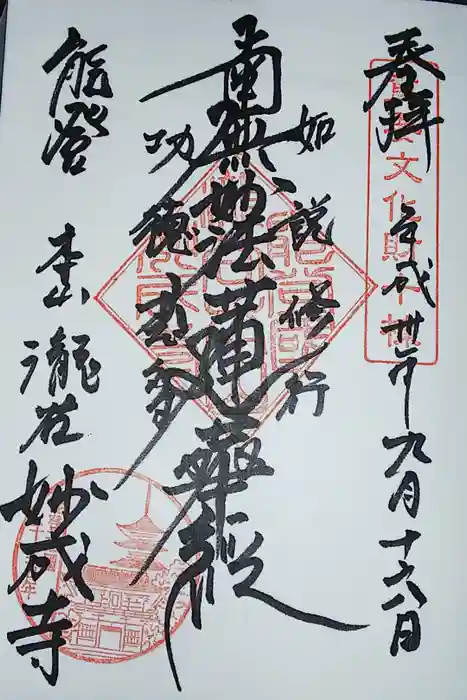 奉拝
平成卅年九月十六日
重要文化財十棟
如説修行
南無妙法蓮華経
功徳甚多
能登
本山 瀧谷 妙成寺